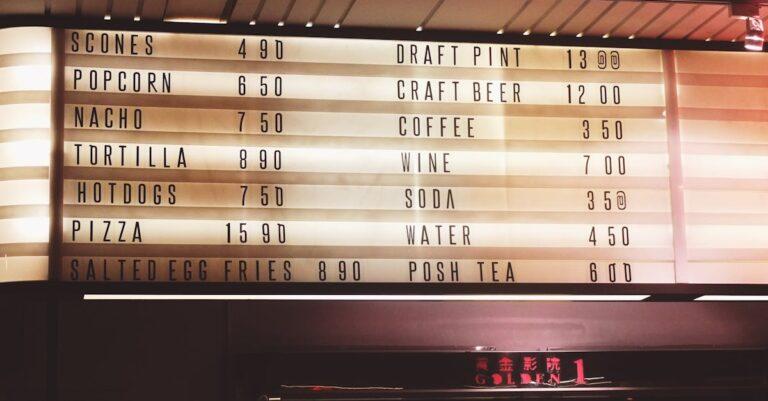 SCONES 4 90
POPCORN 6 50
NACHO 7 50
TORTILLA 8 90
HOTDOGS 7 50
PIZZA 15 90
SALTED EGG FRIES 8 90
DRAFT PINT 13 00
CRAFT BEER 12 00
COFFEE 3 50
WINE 7 00
SODA 3 50
WATER 4 50
POSH TEA 6 00
黃金影院
GOLDEN 1